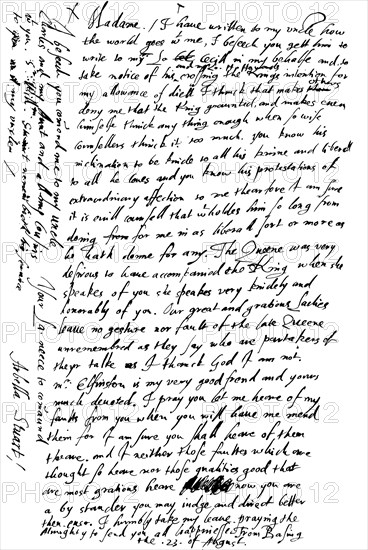 Madame. / I have written to my uncle how
the world goes wt me, I beseech you gett him to
write to my Lo: Cecill in my behalfe and to
take notice of his crossing the Kings intention for
my allowance of diett I thinck that makes
deny me that the King graunted, and makes even
himselfe thinck any thing enough when so wise
counsellers thinck it too much. you know his
inclination to be kinde to all his kinne and liberall
to all he loves and you know his protestations of
extraordinary affection to me thearfore I am sure
it is evill counsell that wtholdes him so long from
doing from for me in as liberall sort or more as
he hath donne for any. The Queene was very
desirous to have accompanied the King when she
speakes of you she speakes very kindely and
honorably of you. Our great and gratious Ladies
leave no gesture nor fault of the late Queene
unremembred as they say who are partakers of
theyr talke as I thanck God I am not.
mr. Elfinston is my very good frend and yours
much devoted, I pray you let me heare of my
faults from you when you will have me mend
them for I am sure you shall heare of them
theare. and I neither those faultes which are
thought so heare nor those qualities good that
are most gratious heare now you are
a by stander you may judge and direct better
then ever. I humbly take my leave praying the
Almighty to send you all happinesse. From Basing
the .23. of August.
Your La: neece to command
Arbella Stuart. /
I beseech you comend me to my uncle
Charles and my Aunt and